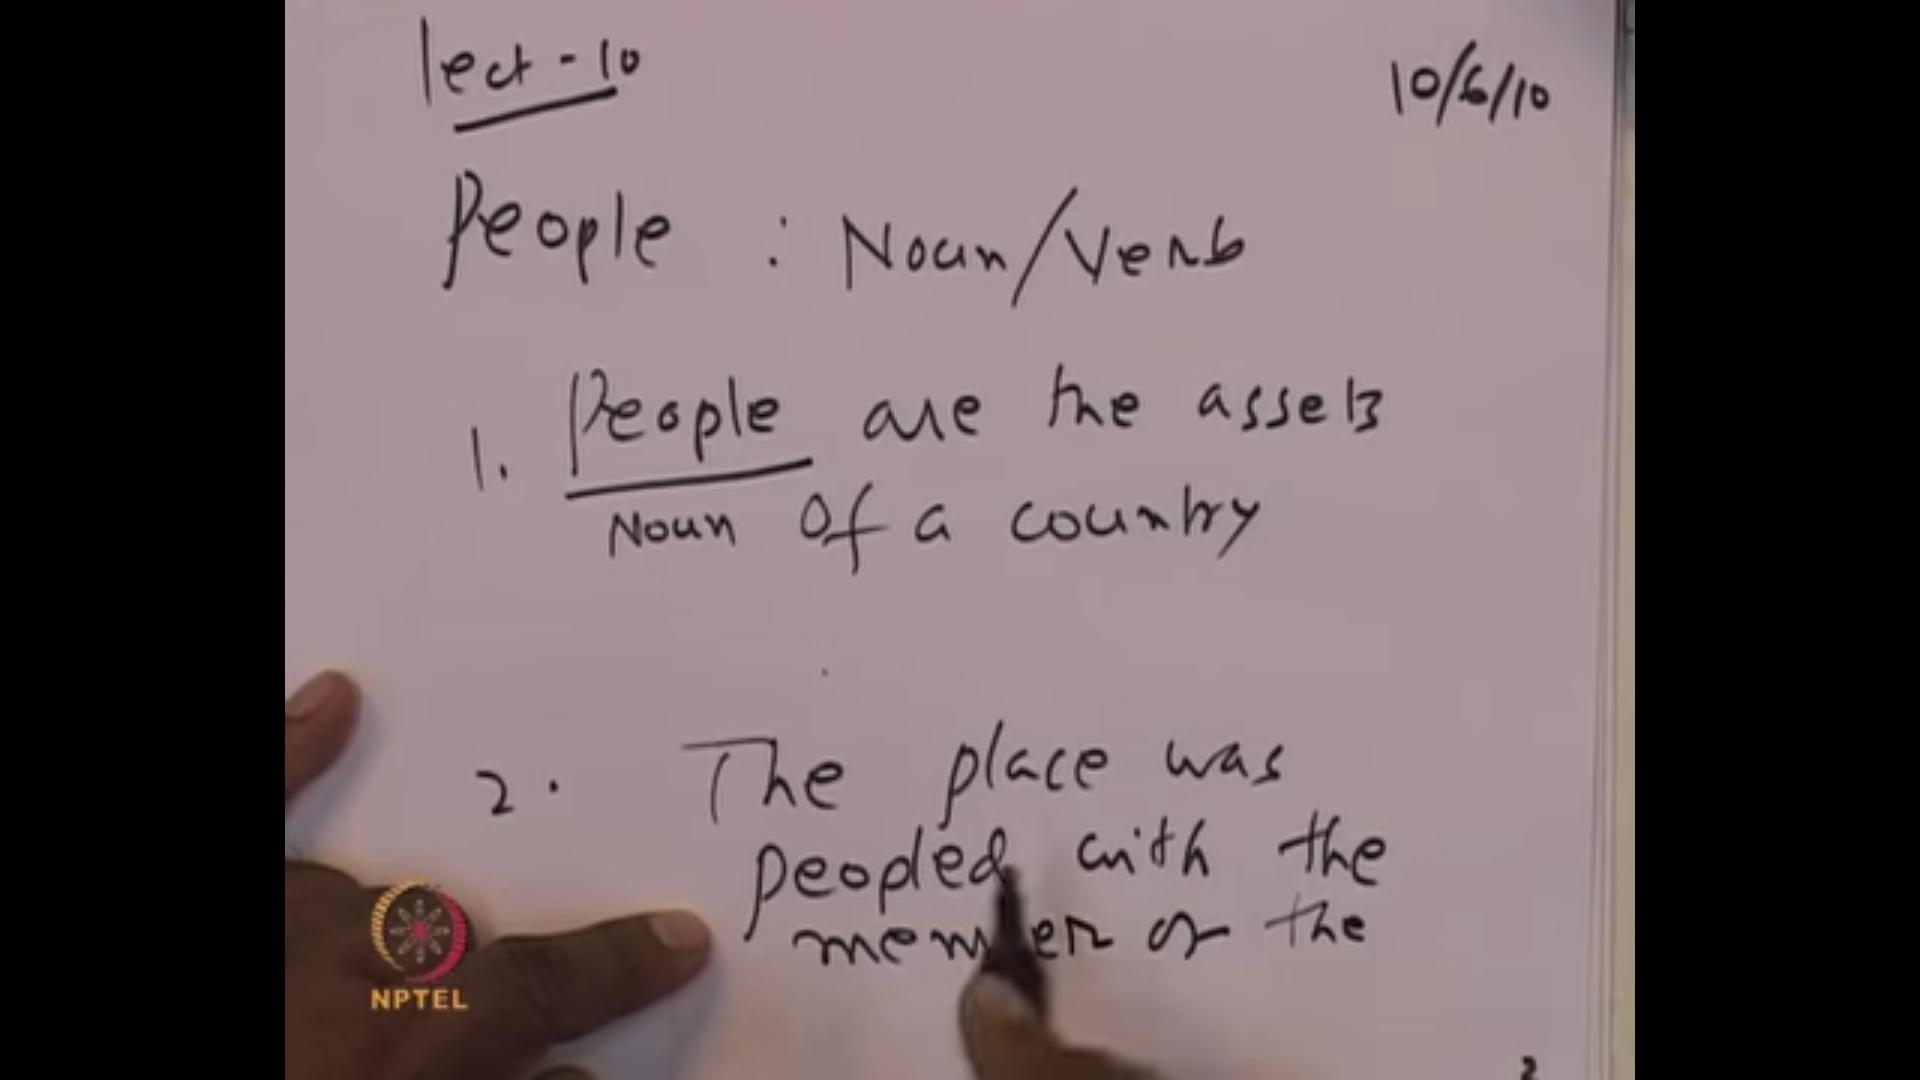 lect-10
10/6/10
People : Noun/Verb
1. People are the assets
Noun of a country
2. The place was
peopled with the
member of the
NPTEL
2